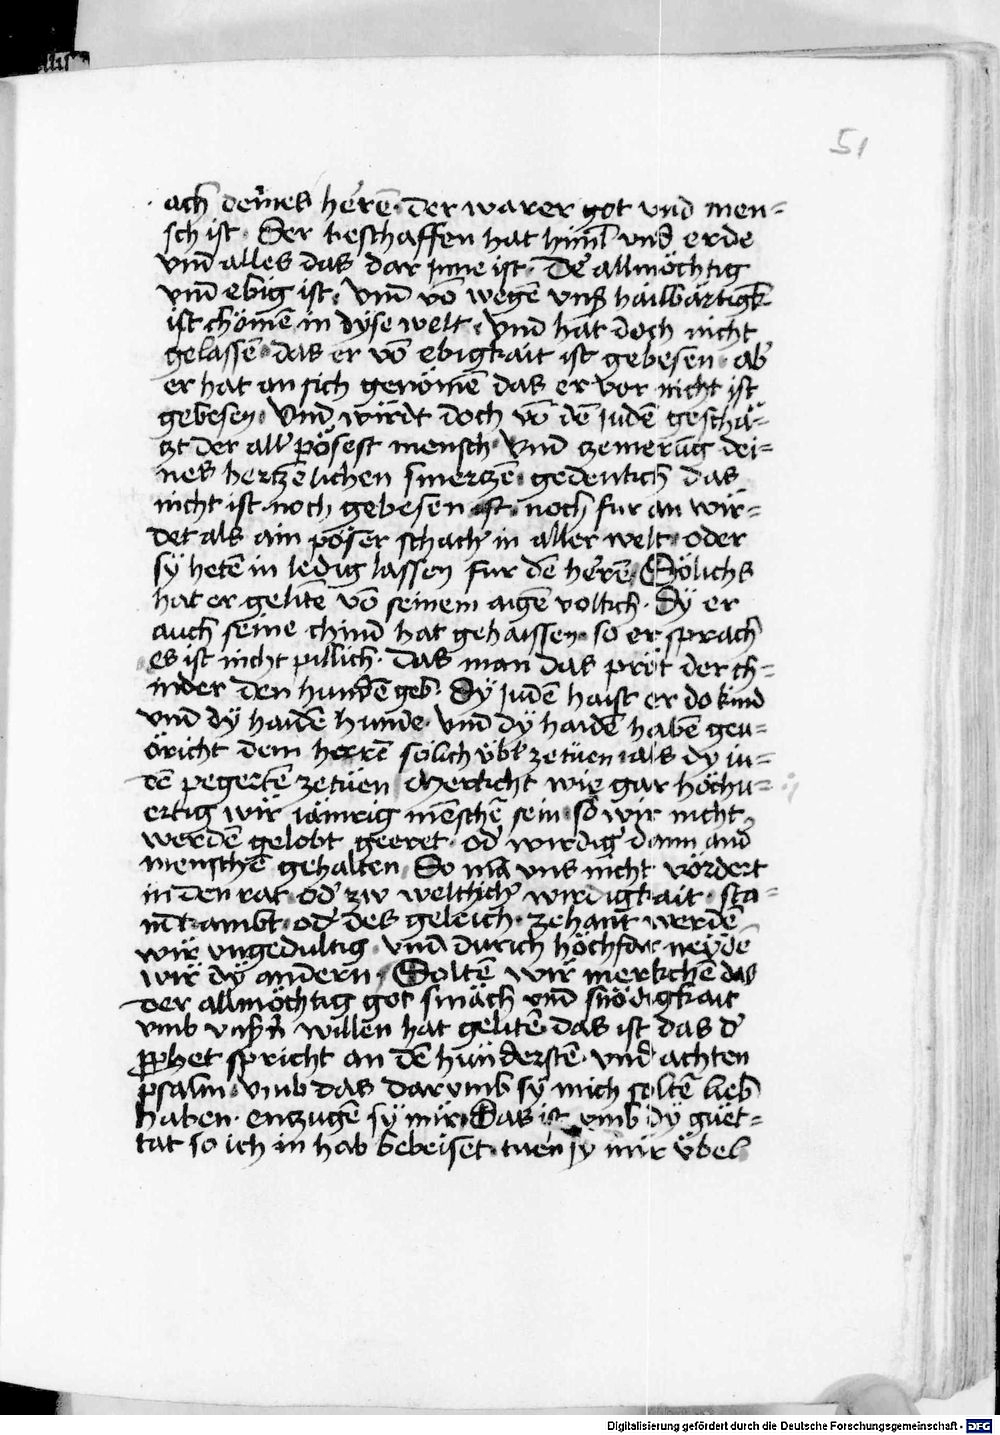 51
ach deines heren̄. Der warer got vnd men=
sch ist. Der beschaffen hat himl̄ vnd erde
vnd alles das dar jnne ist. De᷑ allmöchtig
vnd ebig ist. vnd vō wegē vnß hailbärtigk
ist chömē in dyse welt. vnd hat doch nicht
gelassē. das er vō ebigkait ist gebesen. ab᷑
er hat an sich genömē das er vor nicht ist
gebesen. Vnd wirdt doch vō dē judē geschä=
tzt der all᷑ pösest mensch. Vnd zemerūg dei=
nes hertzēlichen smertzē. gedenckch das
nicht ist noch gebesen ist. noch fur an wir=
det als ain pöser schach᷑ in aller welt. oder
sÿ hetē in ledig lassen fur dē herrē. Sölichs
hat er gelitē vō seinem aigē volkch. Dÿ er
auch seine chind hat gehaissen. so er sprach
es ist nicht pillich. das man das pröt der ch=
inder den hundē geb. Dÿ Judē haist er do kind
vnd dÿ haidē hunde. vnd dÿ haidē habē geu=
öricht dem herrē solich vbl̄ zetüen als dy ju=
dē pegertē zetüen Merkcht wie gar höchu=
ertig wir jämrig mēschē sein. so wir nicht
werdē gelobt geeret. od᷑ wirdig᷑ dann and᷑
menschē gehalten. So mā vns nicht vördert
in den rat. od᷑ zw weltlich᷑ wirdigkait. sta=
nd ambt. od᷑ des geleich. zehant werdē
wir vngedultig. vnd durich höchfar neydē
wir dÿ andern. Soltē wir merkchē das
der allmöchtig got smäch vnd snödigkait
vmb vnß᷑n willen hat gelitē. das ist das d᷑
prophet spricht an dē hünderstē. vnd achten
psalm. vmb das darvmb sÿ mich soltē lieb
haben. enzugē sÿ mir. Das ist vmb dÿ güet=
tat so ich in hab bebeiset. tuen sy mir übel
Digitalisierung gefördert durch die Deutsche Forschungsgemeinschaft - DFG